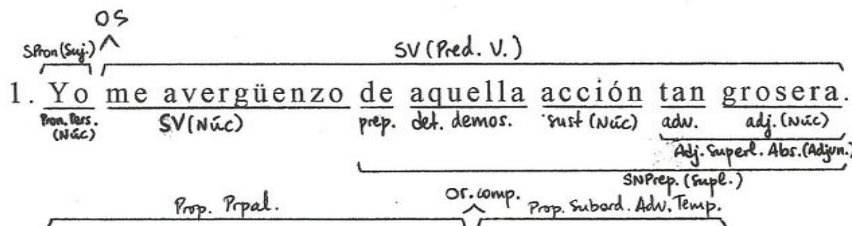 OS
SPron(Suj.) SV(Pred. V.)
1. Yo me avergüenzo de aquella acción tan grosera.
Pron. Pers. (Núc) SV(Núc) prep. det. demos. sust (Núc) adv. adj. (Núc)
Adj. Superl. Abs. (Adjun.)
SNPrep. (Supl.)
Prop. Prpal. Or. comp. Prop. Subord. Adv. Temp.